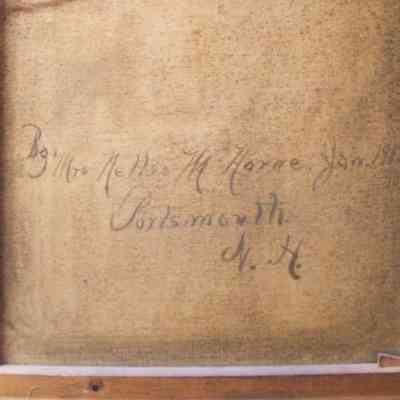 By Mrs Nettie M Horne. Jan. 18
Portsmouth.
N. H.